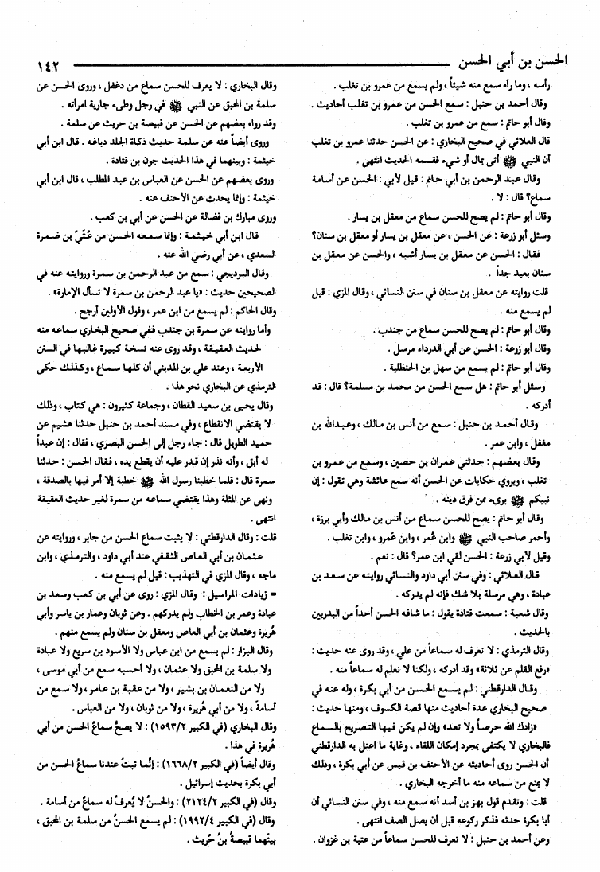 الحسن بن أبي الحسن
١٤٢
رأسه ، وما رآه سمع منه شيئاً ، ولم يسمع من عمرو بن تغلب .
وقال أحمد بن حنبل : سمع الحسن من عمرو بن تغلب أحاديث .
وقال أبو حاتم : سمع من عمرو بن تغلب .
قال العلائي في صحيح البخاري : عن الحسن حدثنا عمرو بن تغلب
أن النبي ﷺ أتى بمال أو شيء فقسمه الحديث انتهى .
وقال عبد الرحمن بن أبي حاتم : قيل لأبي : الحسن عن أسامة
سماع؟ قال : لا .
وقال أبو حاتم : لم يصح للحسن سماع من معقل بن يسار .
وسئل أبو زرعة : عن الحسن ، عن معقل بن يسار أو معقل بن سنان؟
فقال : الحسن عن معقل بن يسار أشبه ، والحسن عن معقل بن
سنان بعيد جداً .
قلت روايته عن معقل بن سنان في سنن النسائي ، وقال المزي : قيل
لم يسمع منه .
وقال أبو حاتم : لم يصح للحسن سماع من جندب .
وقال أبو زرعة : الحسن عن أبي الدرداء مرسل .
وقال أبو حاتم : لم يسمع من سهل بن الحنظلية .
وسئل أبو حاتم : هل سمع الحسن من محمد بن مسلمة؟ قال : قد
أدركه .
وقال أحمد بن حنبل : سمع من أنس بن مالك ، وعبدالله بن
مغفل ، وابن عمر .
وقال بعضهم : حدثني عمران بن حصين ، وسمع من عمرو بن
تغلب ، ويروي حكايات عن الحسن أنه سمع عائشة وهي تقول : إن
نبيكم ﷺ بريء من فرق دينه .
وقال أبو حاتم : يصح للحسن سماع من أنس بن مالك وأبي برزة ،
وأحمر صاحب النبي ﷺ وابن عُمر ، وابن عَمرو ، وابن تغلب .
وقيل لأبي زرعة : الحسن لقي ابن عمر؟ قال : نعم .
قال العلائي : وفي سنن أبي داود والنسائي روايته عن سعد بن
عبادة ، وهي مرسلة بلا شك فإنه لم يدركه .
وقال شعبة : سمعت قتادة يقول : ما شافه الحسن أحداً من البدريين
بالحديث .
وقال الترمذي : لا نعرف له سماعاً من علي ، وقد روى عنه حديث :
«رفع القلم عن ثلاثة» وقد أدركه ، ولكنا لا نعلم له سماعاً منه .
وقال الدارقطني : لم يسمع الحسن من أبي بكرة ، وله عنه في
صحيح البخاري عدة أحاديث منها قصة الكسوف ، ومنها حديث :
«زادك الله حرصاً ولا تعد» وإن لم يكن فيها التصريح بالسماع
فالبخاري لا يكتفي بمجرد إمكان اللقاء ، وغاية ما اعتل به الدارقطني
أن الحسن روى أحاديثه عن الأحنف بن قيس عن أبي بكرة ، وذلك
لا يمنع من سماعه منه ما أخرجه البخاري .
قلت : وتقدم قول بهز بن أسد أنه سمع منه ، وفي سنن النسائي أن
أبا بكرة حدثه فذكر ركوعه قبل أن يصل الصف انتهى .
وعن أحمد بن حنبل : لا نعرف للحسن سماعاً من عتبة بن غزوان .
وقال البخاري : لا يعرف للحسن سماع من دغفل ، وروى الحسن عن
سلمة بن المحبق عن النبي ﷺ في رجل وطىء جارية امرأته .
وقد رواه بعضهم عن الحسن عن قبيصة بن حريث عن سلمة .
وروى أيضاً عنه عن سلمة حديث ذكاة الجلد دباغه . قال ابن أبي
خيثمة : وبينهما في هذا الحديث جون بن قتادة .
وروى بعضهم عن الحسن عن العباس بن عبد المطلب ، قال ابن أبي
خيثمة : وإنما يحدث عن الأحنف عنه .
وروى مبارك بن فضالة عن الحسن عن أبي بن كعب .
قال ابن أبي خيثمة : وإنما سمعه الحسن من عُتَيّ بن ضمرة
السعدي ، عن أبي رضي الله عنه .
وقال البرديجي : سمع من عبد الرحمن بن سمرة وروايته عنه في
الصحيحين حديث : «يا عبد الرحمن بن سمرة لا تسأل الإمارة» .
وقال الحاكم : لم يسمع من ابن عمر ، وقول الأولين أرجح .
وأما روايته عن سمرة بن جندب ففي صحيح البخاري سماعه منه
لحديث العقيقة ، وقد روى عنه نسخة كبيرة غالبها في السنن
الأربعة ، وعند علي بن المديني أن كلها سماع ، وكذلك حكى
الترمذي عن البخاري نحو هذا .
وقال يحيى بن سعيد القطان ، وجماعة كثيرون : هي كتاب ، وذلك
لا يقتضي الانقطاع ، وفي مسند أحمد بن حنبل حدثنا هشيم عن
حميد الطويل قال : جاء رجل إلى الحسن البصري ، فقال : إن عبداً
له أبق ، وأنه نذر إن قدر عليه أن يقطع يده ، فقال الحسن : حدثنا
سمرة قال : قلما خطبنا رسول الله ﷺ خطبة إلا أمر فيها بالصدقة ،
ونهى عن المثلة وهذا يقتضي سماعه من سمرة لغير حديث العقيقة
انتهى .
قلت : وقال الدارقطني : لا يثبت سماع الحسن من جابر ، وروايته عن
عثمان بن أبي العاص الثقفي عند أبي داود ، والترمذي ، وابن
ماجه ، وقال المزي في التهذيب : قيل لم يسمع منه .
* زيادات المراسيل : وقال المزي : روى عن أبي بن كعب وسعد بن
عبادة وعمر بن الخطاب ولم يدركهم . وعن ثوبان وعمار بن ياسر وأبي
هُريرة وعثمان بن أبي العاص ومعقل بن سنان ولم يسمع منهم .
وقال البزار : لم يسمع من ابن عباس ولا الأسود بن سريع ولا عبادة
ولا سلمة بن المحبق ولا عثمان ، ولا أحسبه سمع من أبي موسى ،
ولا من النعمان بن بشير ، ولا من عقبة بن عامر ، ولا سمع من
أسامة ، ولا من أبي هُريرة ، ولا من ثوبان ، ولا من العباس .
وقال البخاري (في الكبير ١٥٩٣/٢) : لا يصحُّ سماعُ الحسن من أبي
هُريرة في هذا .
وقال أيضاً (في الكبير ١٦٦٨/٢) : إنَّما ثبتَ عندنا سماعُ الحسن من
أبي بكرة بحديث إسرائيل .
وقال (في الكبير ٢١٢٤/٢) : والحسنُ لا يُعرفُ له سماعٌ من أسامة .
وقال (في الكبير ١٩٩٢/٤) : لم يسمع الحسنُ من سلمة بن المحبق ،
بينهما قبيصةُ بنُ حُريث .